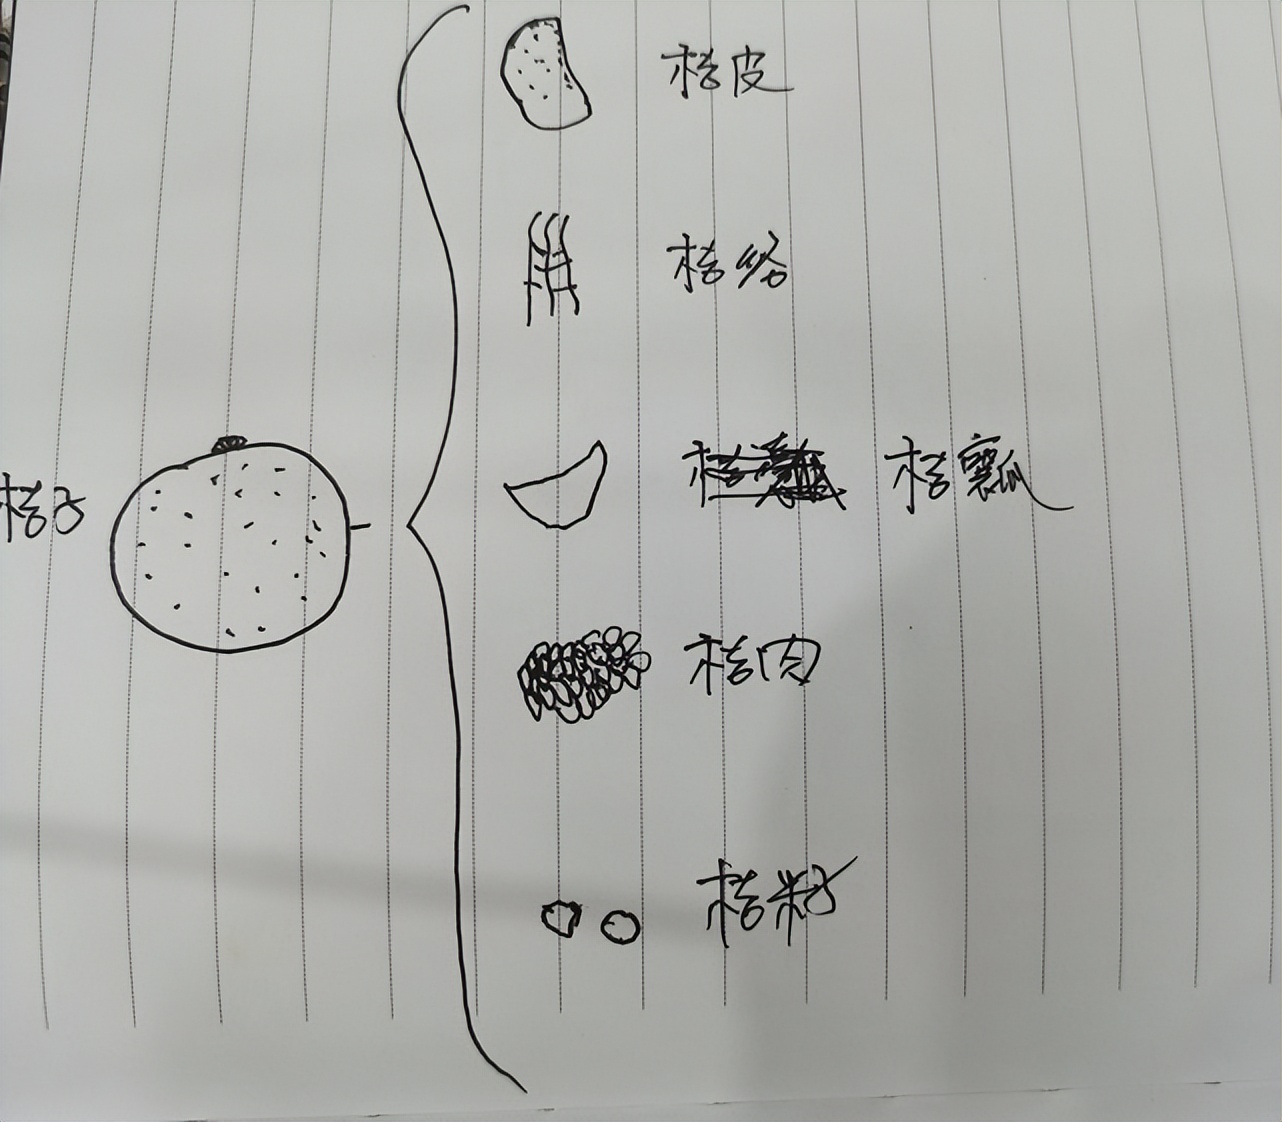 桔子
桔皮
桔络
桔瓤
桔肉
桔籽